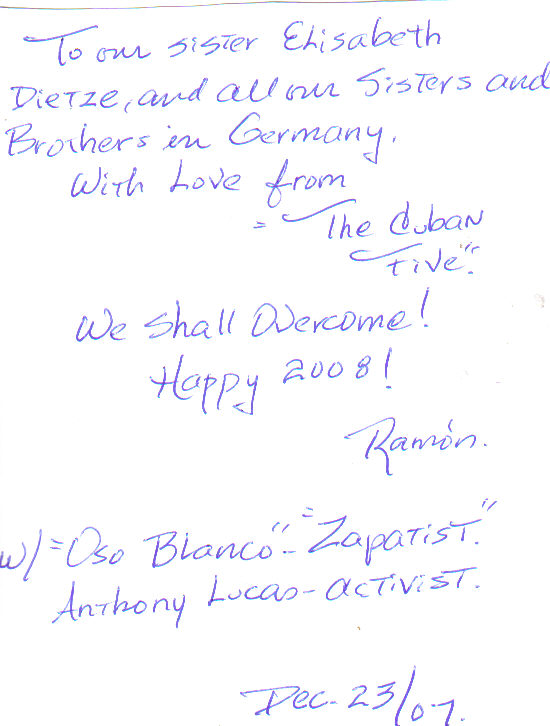 To our sister Elisabeth
Dietze, and all our Sisters and
Brothers in Germany.
With Love from
"The Cuban
Five".
We Shall Overcome!
Happy 2008!
Ramón.
w/ "Oso Blanco" - "Zapatist."
Anthony Lucas - activist.
Dec. 23/07.